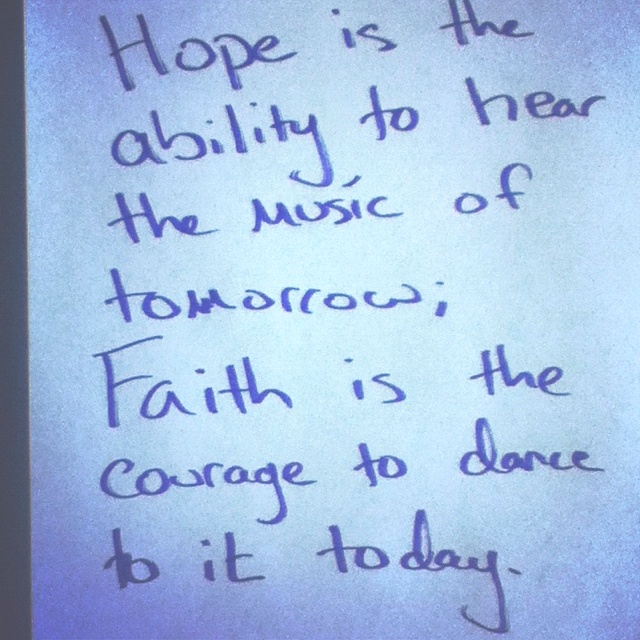 Hope is the
ability to hear
the music of
tomorrow;
Faith is the
courage to dance
to it today.